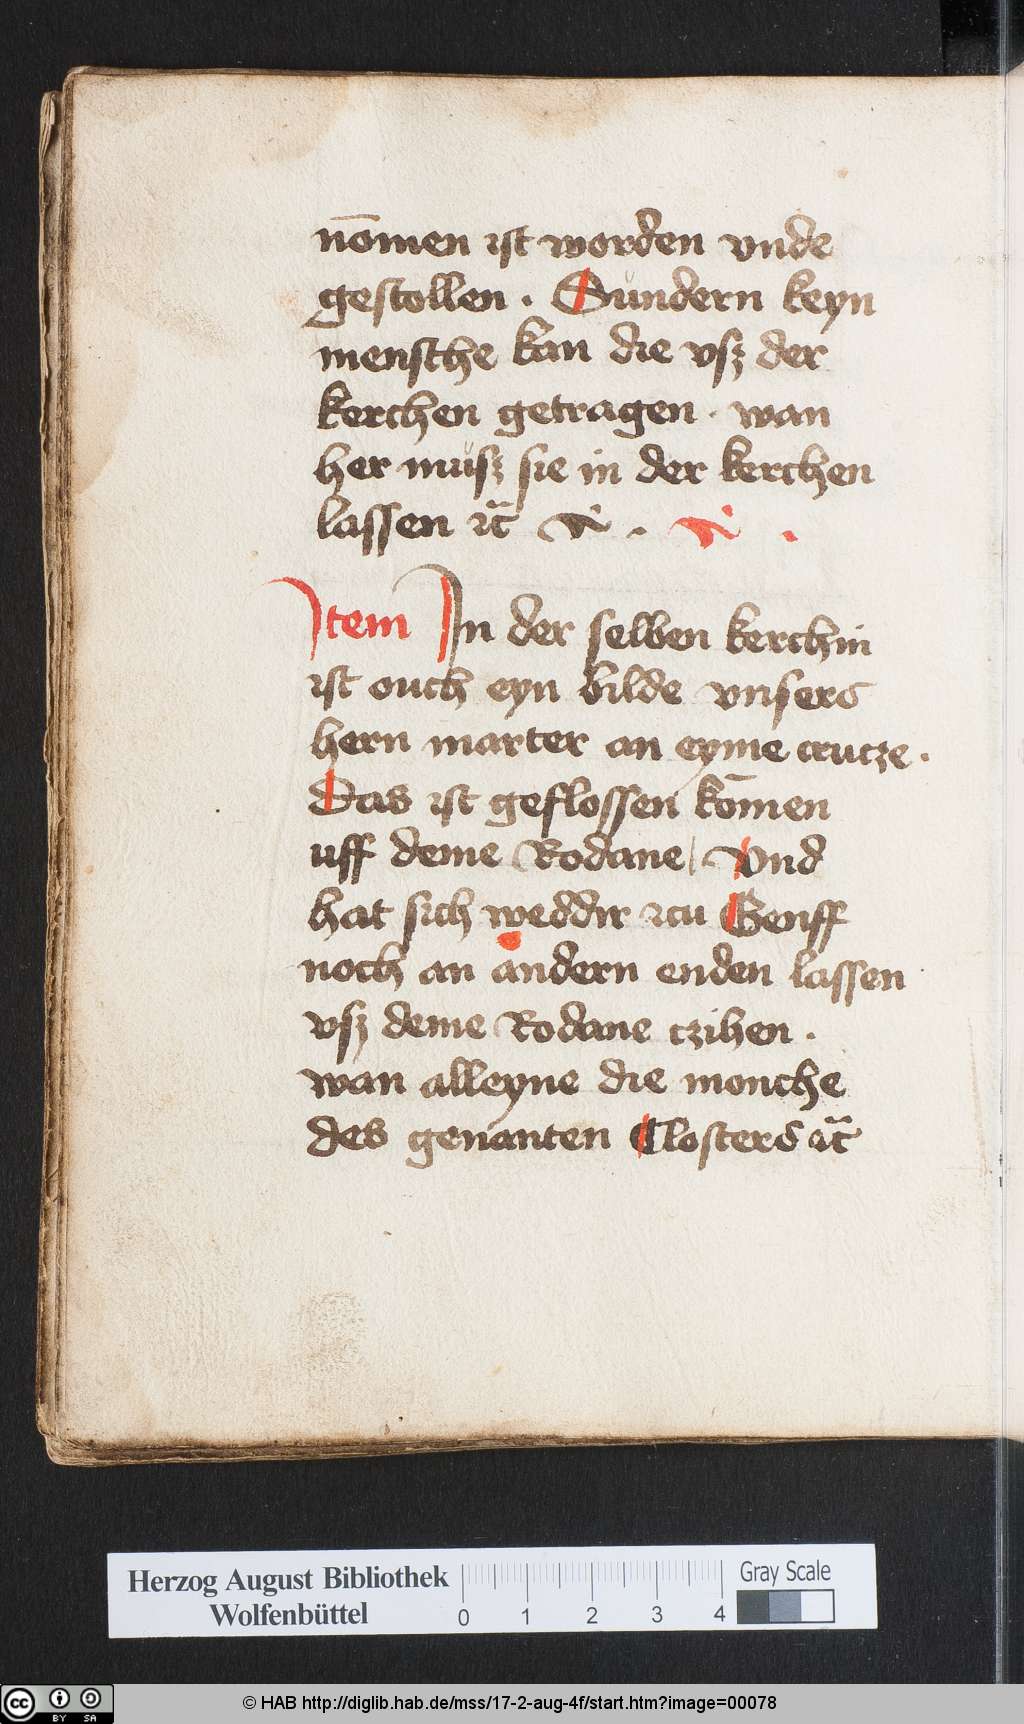 nōmen ist worden vnde
gestollen . Sundern keyn
mensche kan die vsz der
kerchen getragen . wan
her musz sie in der kerchen
lassen ꝛc̃
Item In der selben kerchin
ist ouch eyn bilde vnsers
hern marter an eyme crutze .
Das ist geflossen kōmen
uff deme Rodane / Vnd
hat sich weddir zcu Genff
noch an andern enden lassen
vsz deme Rodane czihen .
wan alleyne die monche
des genanten Closters ꝛc̃
Herzog August Bibliothek
Wolfenbüttel
0 1 2 3 4
Gray Scale
cc BY SA
© HAB http://diglib.hab.de/mss/17-2-aug-4f/start.htm?image=00078